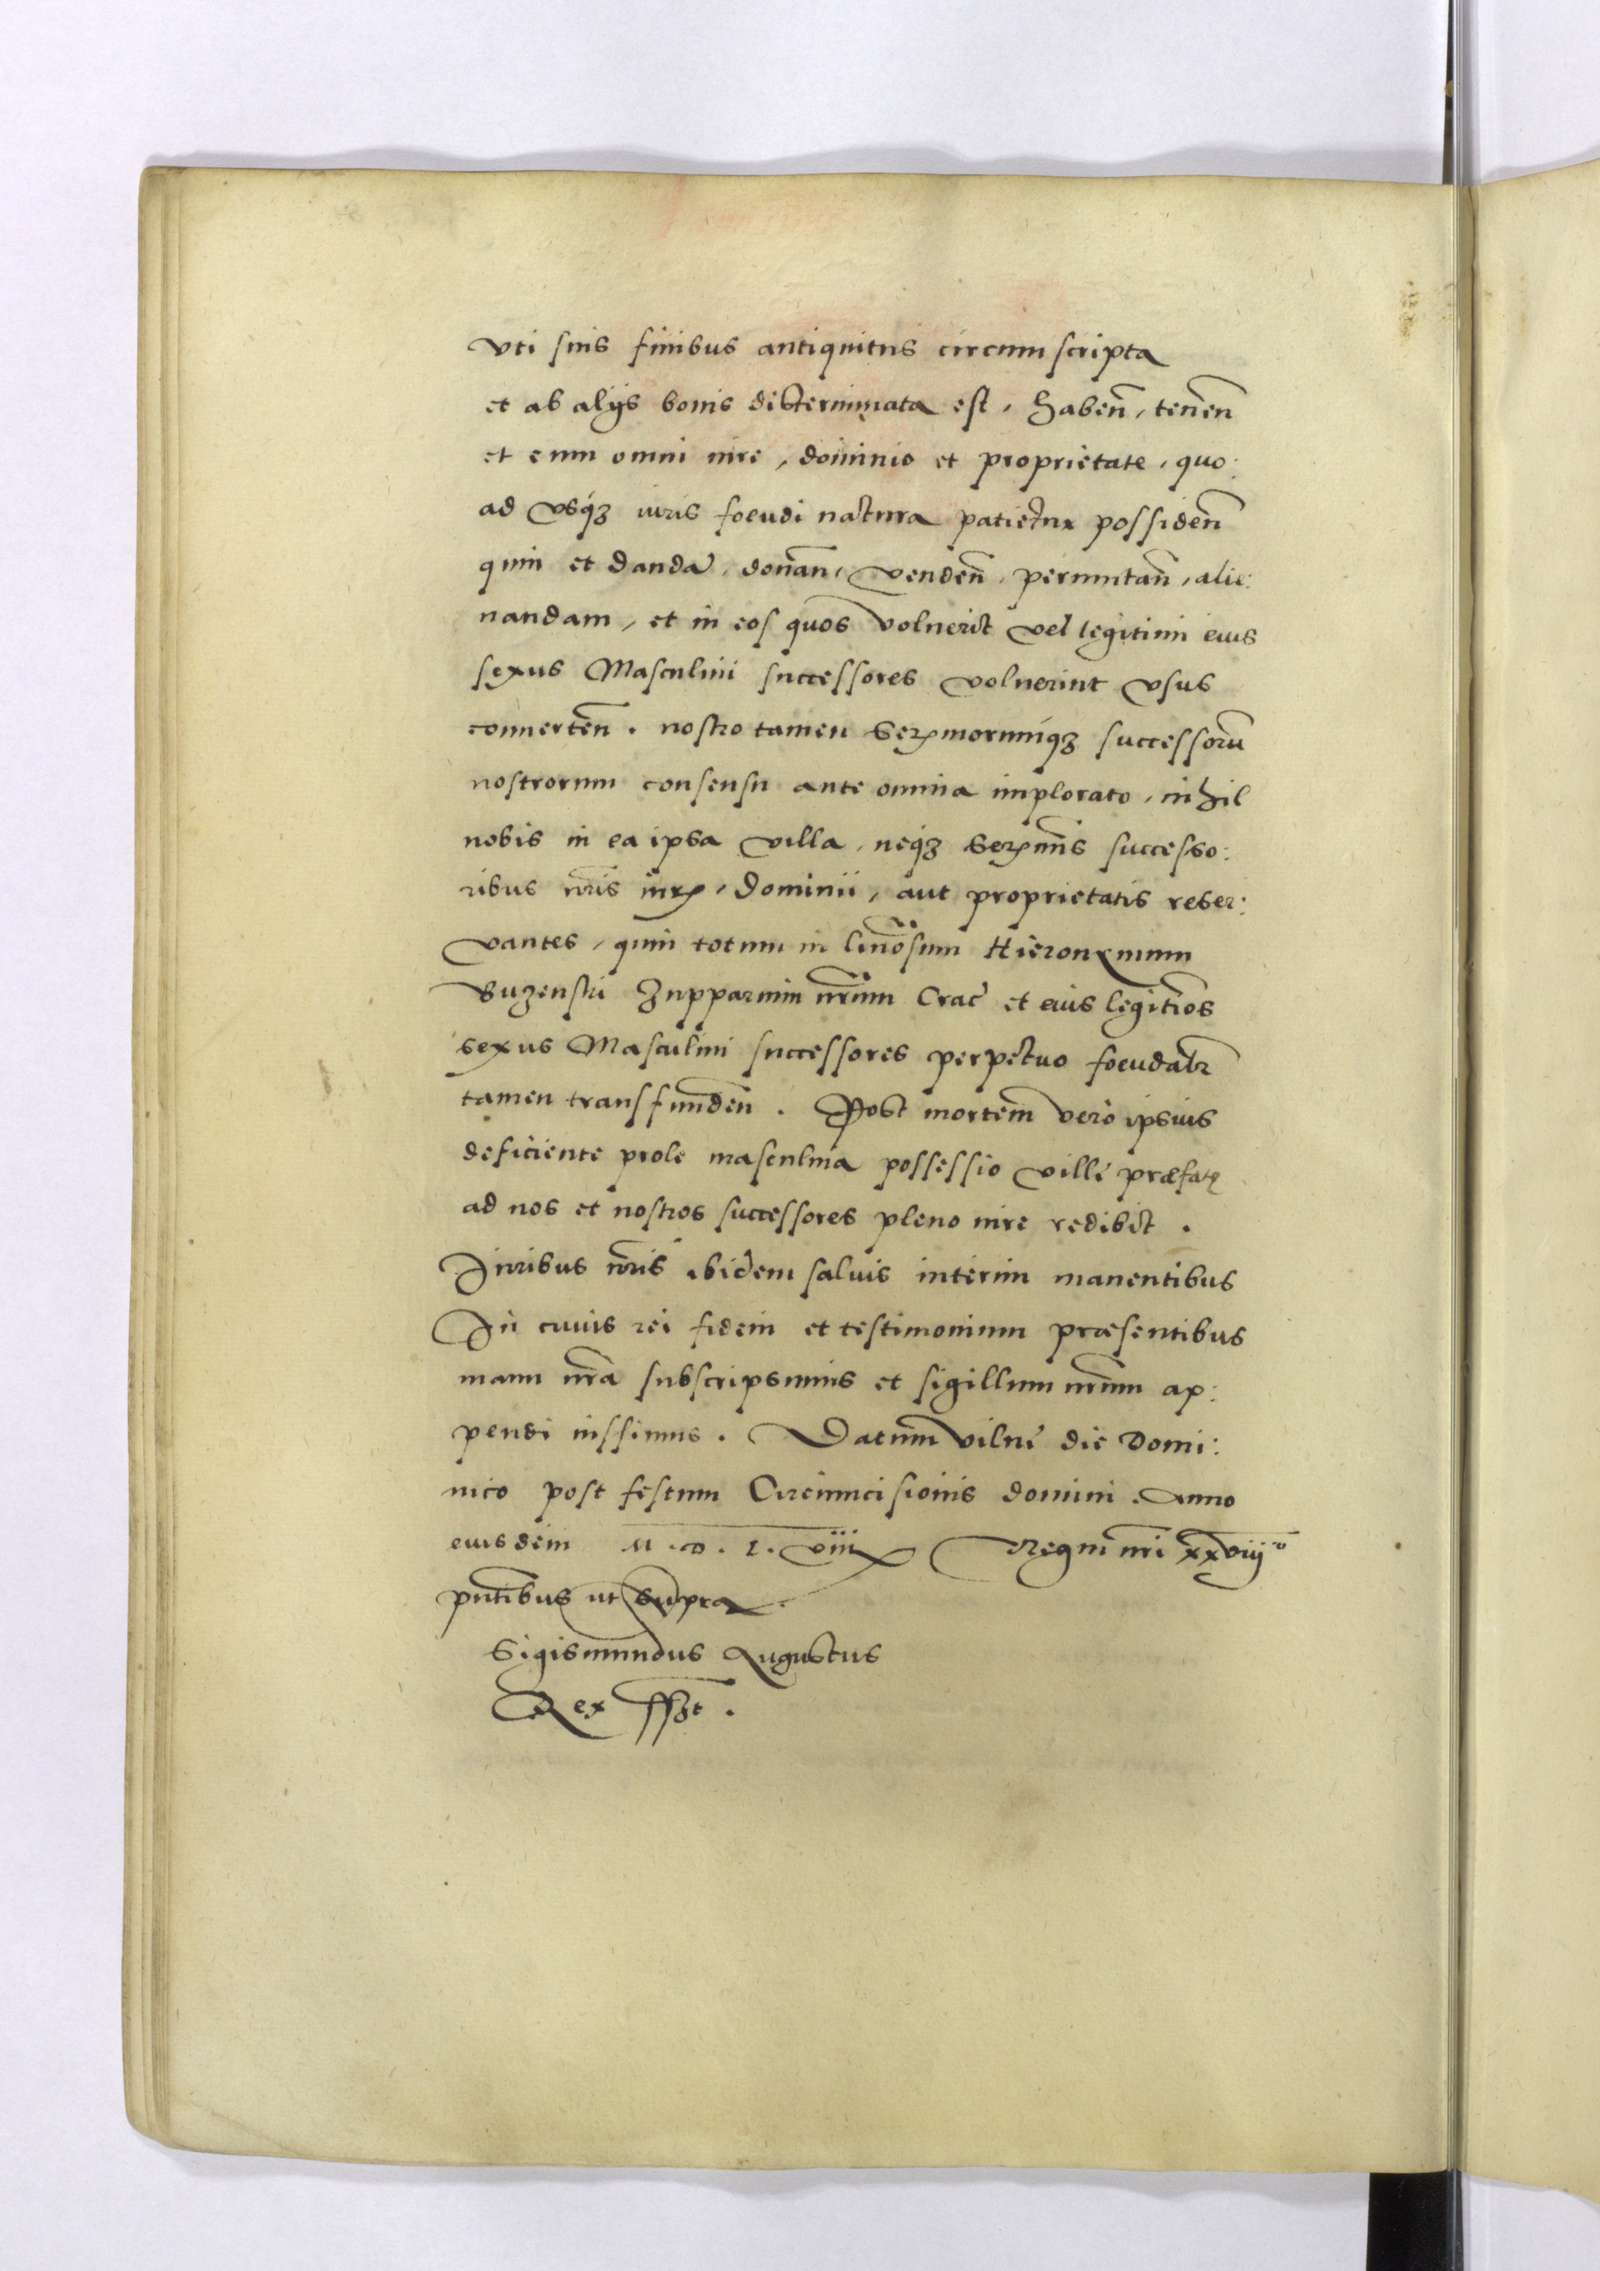 vti suis finibus antiquitus circumscripta
et ab alijs bonis disterminata est, haben̄, tenen̄
et cum omni iure, dominio et proprietate, quo:
ad vsqꝫ iuris foeudi natura patietur possiden̄
quin et dandā, donan̄, venden̄, permutan̄, alie:
nandam, et in eos quos voluerit vel legitimi eius
sexus Masculini successores voluerint vsus
conuerten̄. nostro tamen Serꝫmorumqꝫ successorū
nostrorum consensu ante omnia implorato, nihil
nobis in ea ipsa villa, neqꝫ Serꝫmis successo:
ribus nr̄is iuris, dominii, aut proprietatis reser:
vantes, quin totum in Hieronymum
Buzenski Zupparium nr̄um Crac̄ et eius legitimos
sexus Masculini successores perpetuo foeudalr̄
tamen transfunden̄. Post mortem vero ipsius
deficiente prole masculina possessio villę præfatę
ad nos et nostros successores pleno iure redibit.
Iuribus nr̄is ibidem saluis interim manentibus
In cuius rei fidem et testimonium præsentibus
manu nr̄a subscripsimus et sigillum nr̄um ap:
pendi iussimus. Datum Vilnę die Domi:
nico post festum Circumcisionis domini. Anno
eiusdem M.D.L.viii Regni nr̄i xxviij°
pn̄tibus ut supra.
Sigismundus Augustus
Rex sszt.